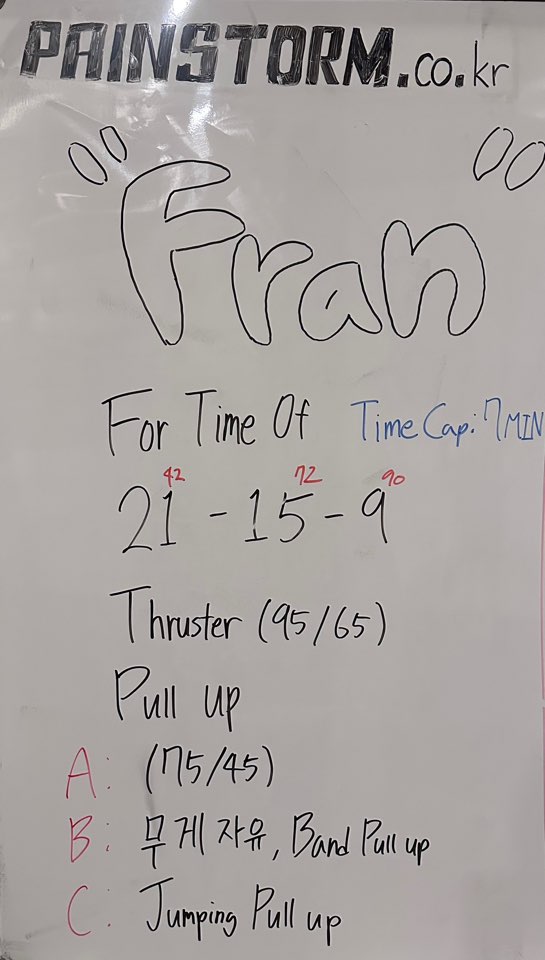 PAINSTORM.co.kr
"Fran"
For Time Of Time Cap: 7 MIN
42 72 90
21 - 15 - 9
Thruster (95/65)
Pull up
A: (75/45)
B: 무게 자유, Band Pull up
C: Jumping Pull up